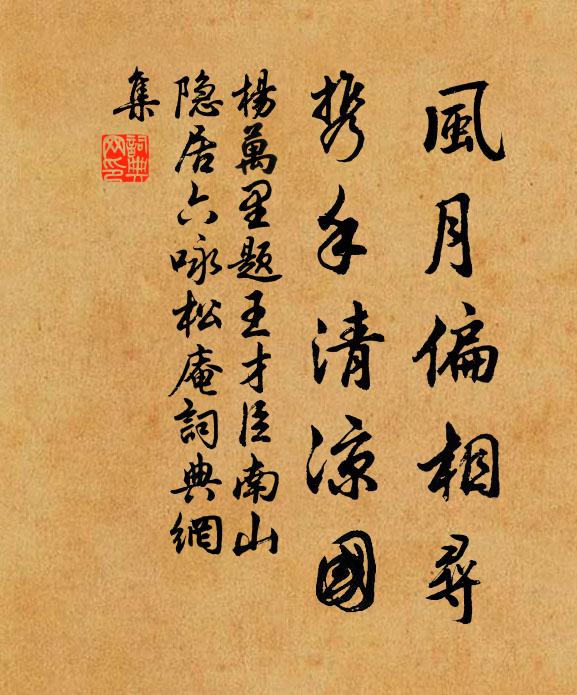 風月偏相尋
携手清凉國
楊萬里題王才臣南山
隐居六咏松庵詞典網
集
詞典網印